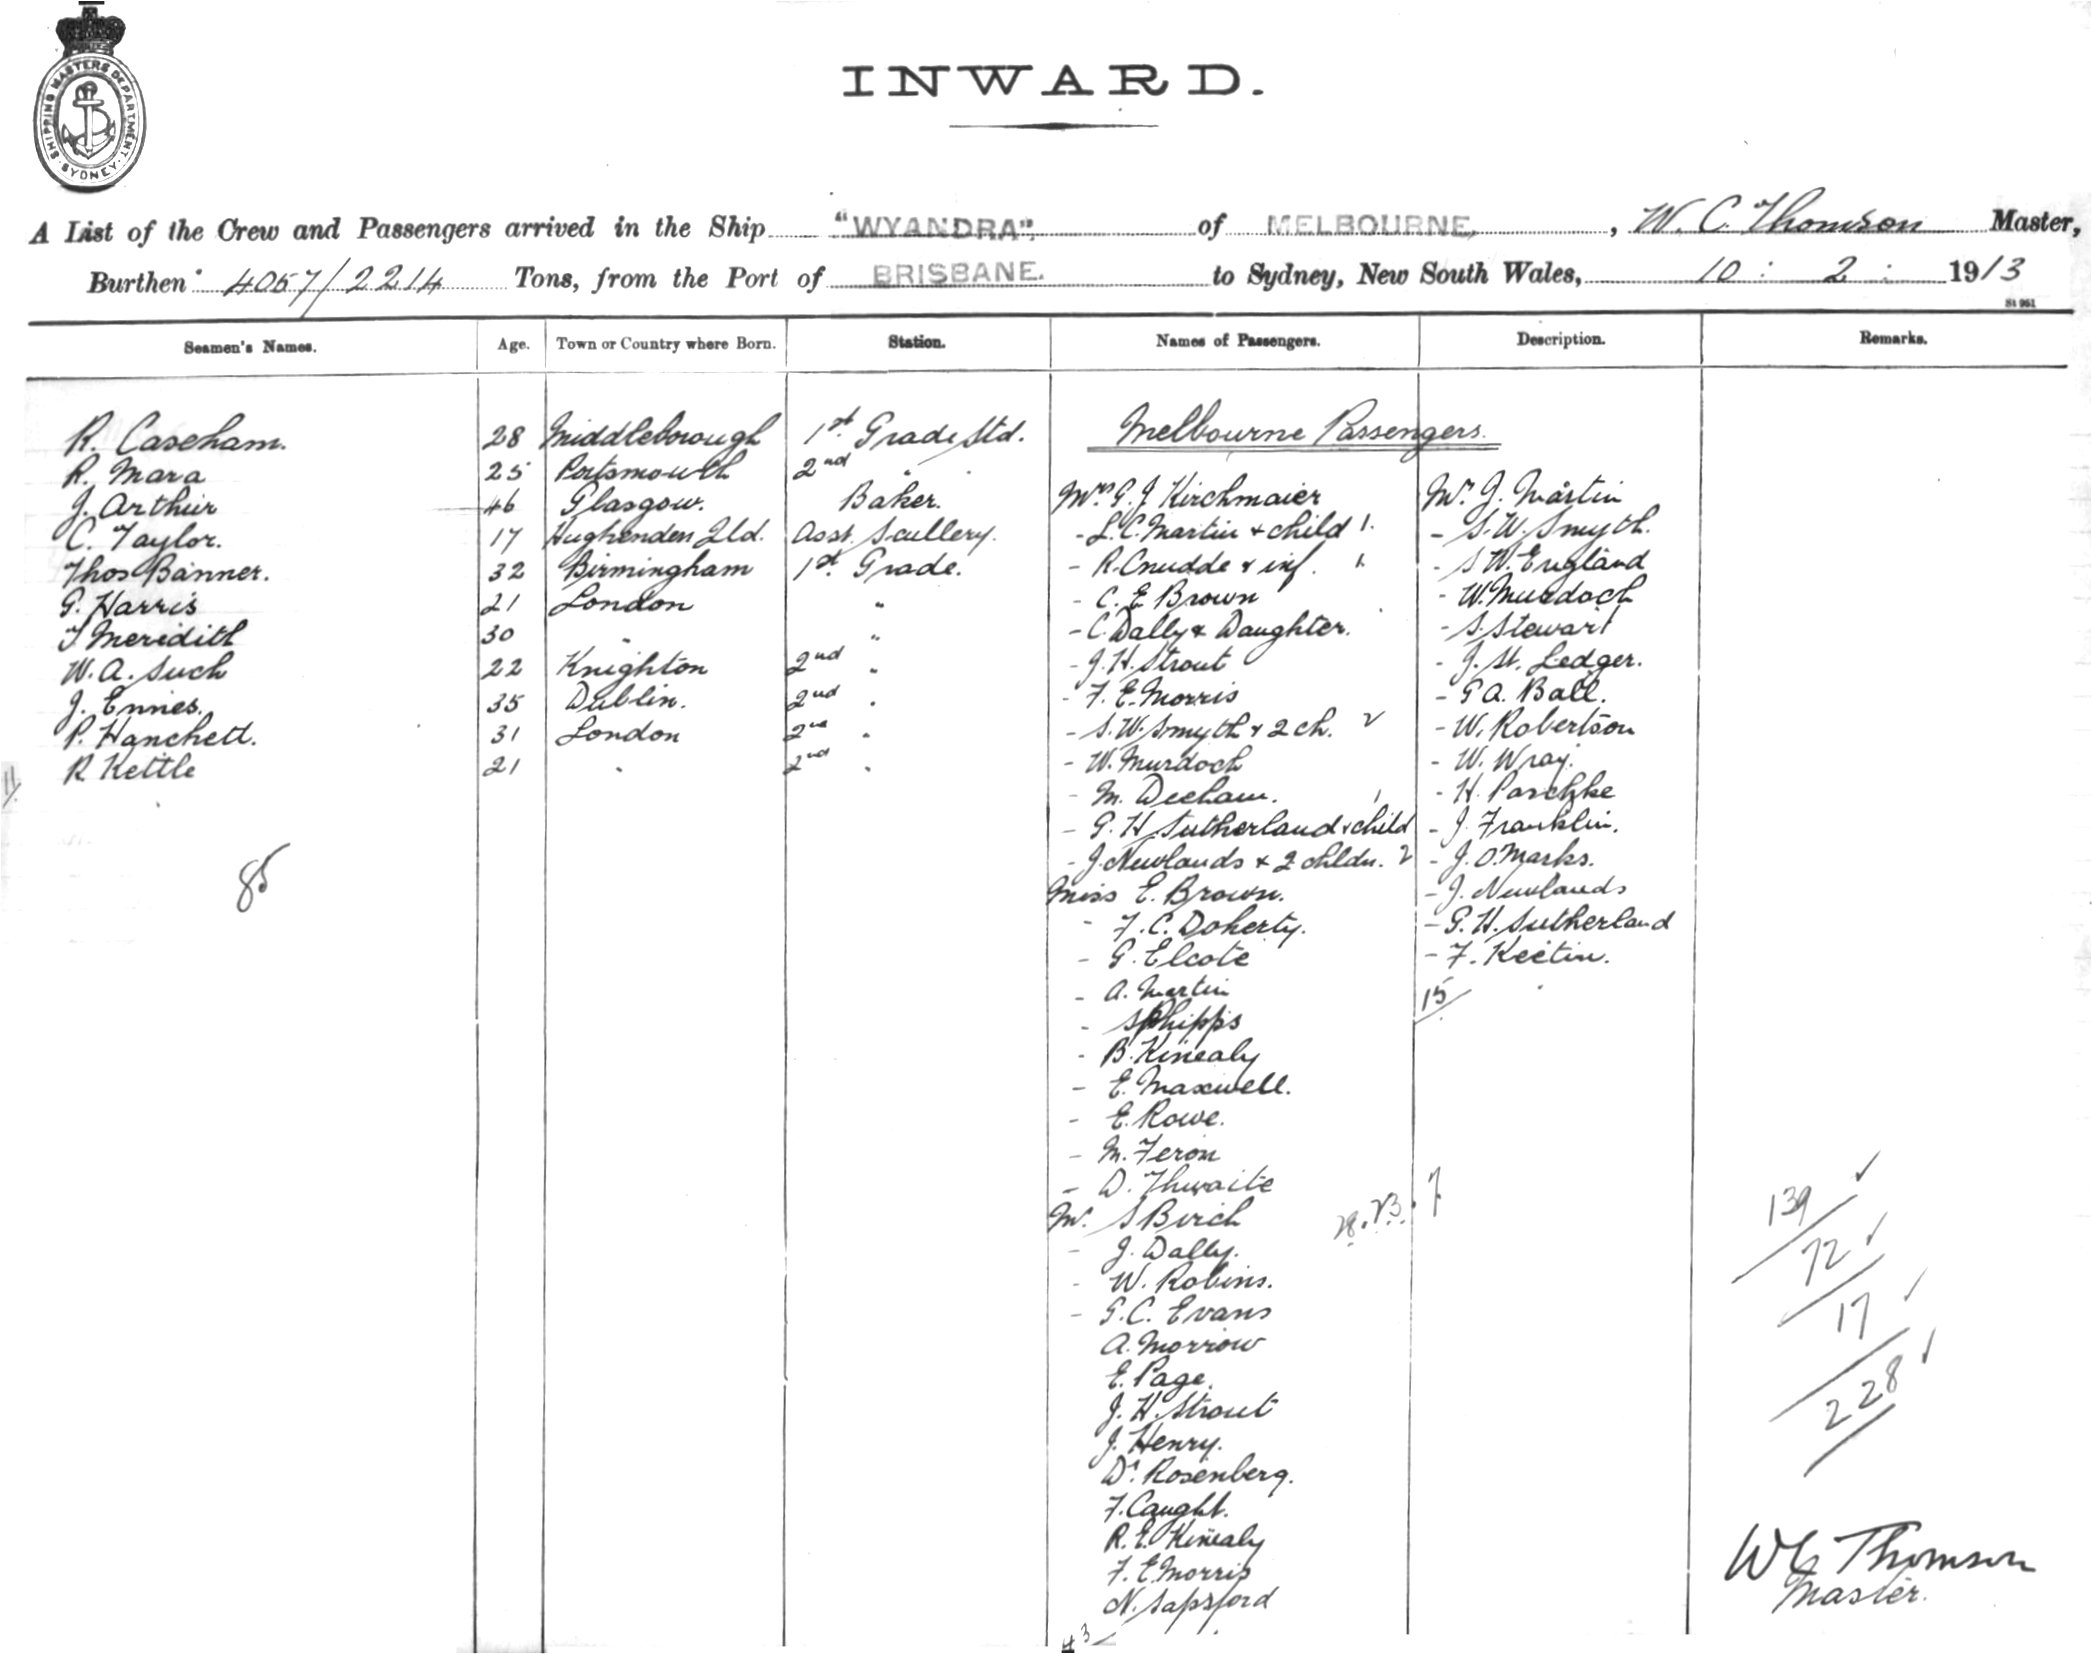 SHIPPING MASTERS DEPARTMENT · SYDNEY ·
INWARD.
A List of the Crew and Passengers arrived in the Ship "WYANDRA" of MELBOURNE, W. C. Thomson Master,
Burthen 4057/2214 Tons, from the Port of BRISBANE. to Sydney, New South Wales, 10 : 2 : 1913
St 961
Seamen's Names. Age. Town or Country where Born. Station. Names of Passengers. Description. Remarks.
R. Caseham. 28 Middleborough 1st Grade Std.
R. Mara 25 Portsmouth 2nd "
J. Arthur 46 Glasgow. Baker.
C. Taylor. 17 Hughenden Qld. Asst. Scullery.
Thos Banner. 32 Birmingham 1st Grade.
G. Harris 21 London "
T Meridith 30 " "
W. A. Such 22 Knighton 2nd "
J. Ennes. 35 Dublin. 2nd "
P. Hanchett. 31 London 2nd "
R Kettle 21 " 2nd "
11/
85
Melbourne Passengers.
Mrs G. J. Kirchmaier
- L. C. Martin & child 1.
- R. Cnudde & inf. 1.
- C. E Brown
- C. Dally & Daughter.
- J. H. Strout
- F. E. Morris
- S. W. Smyth & 2 ch. 2
- W. Murdoch
- M. Deeham. 1
- G. H Sutherland & child
- J. Newlands & 2 chldn. 2
Miss E. Brown.
- F. C. Doherty.
- G. Elcote
- A. Martin
- S Phipps
- B. Kinealy
- E. Maxwell.
- E. Rowe.
- M. Feron
- D. Thwaite
Mr. S Birch
- J. Dally.
- W. Robins.
- G. C. Evans
A. Morrow
E. Page.
J. H. Strout
J. Henry.
Dr. Rosenberg.
F. Caught.
R. E. Kinealy
F. E. Morris
N. Sapsford
43
Mr. J. Martin
- S. W. Smyth.
- S W. England
- W. Murdoch
- S. Stewart
- J. St. Ledger.
- G A. Ball.
- W. Robertson
- W. Wray.
- H. Paschke
- J. Franklin.
- J. O. Marks.
- J. Newlands
- G. H. Sutherland
- F. Keetin.
15
28. 23. 7
139
72
17
228
W C Thomson
Master.